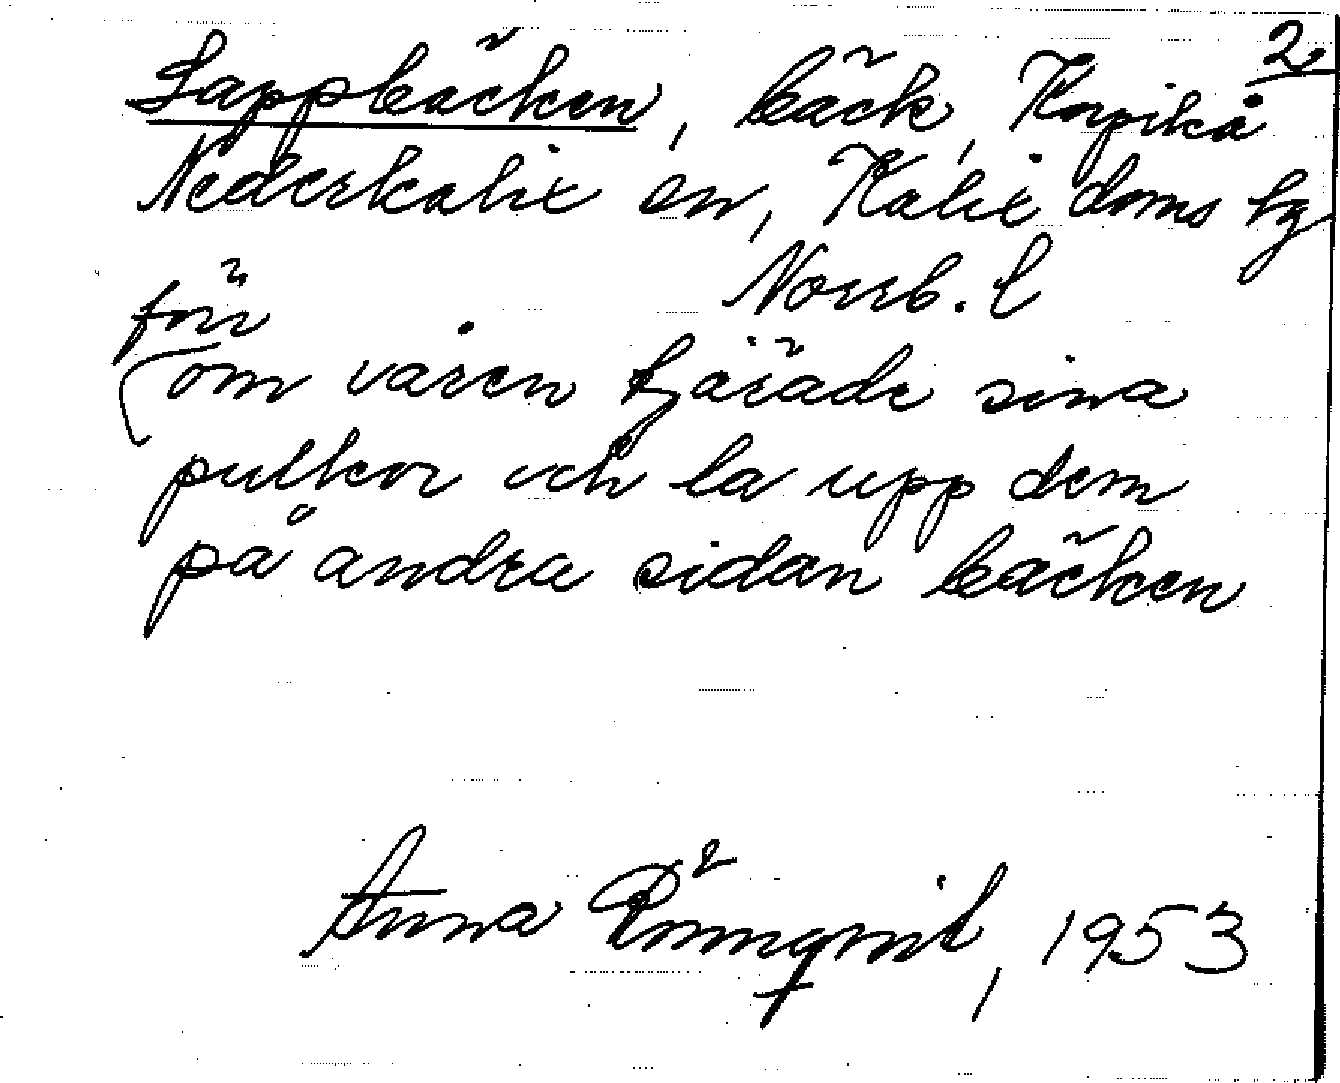 2.
Lappbäcken, bäck, Korpikå
Nederkalix sn, Kalix doms hg
Norrb. l
förr
om våren tjärade sina
pulkor och la upp dem
på andra sidan bäcken
Anna Rönnqvist, 1953